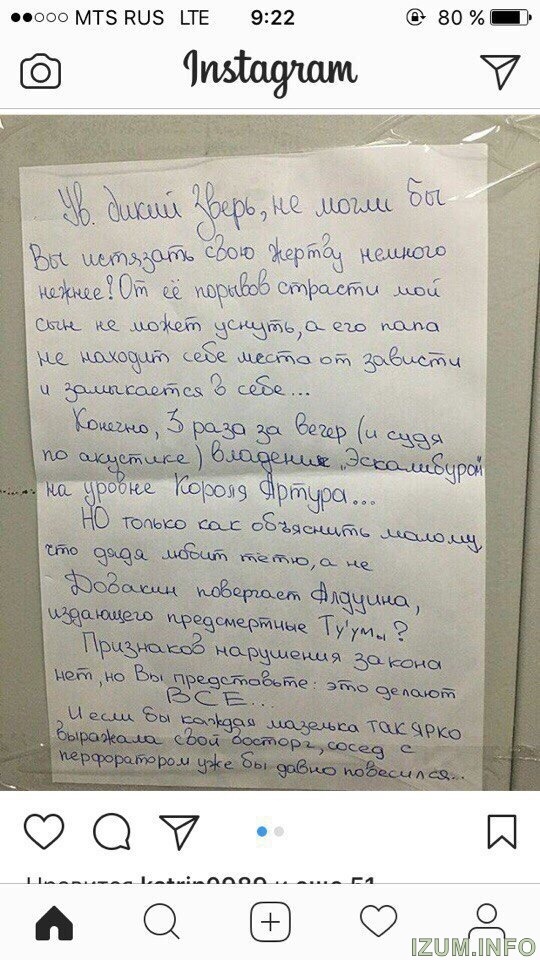 MTS RUS LTE 9:22 80 %
Instagram
Ув. дикий Зверь, не могли бы
Вы истязать свою жертву немного
нежнее? От её порывов страсти мой
сын не может уснуть, а его папа
не находит себе места от зависти
и замыкается в себе...
Конечно, 3 раза за вечер (и судя
по акустике) владение „Эскалибуром
на уровне Короля Артура...
НО только как объяснить малому,
что дядя любит тётю, а не
Довакин повергает Алдуина,
издающего предсмертные Ту'умы?
Признаков нарушения закона
нет, но Вы представьте: это делают
ВСЕ...
И если бы каждая мазелька ТАК ЯРКО
выражала свой восторг, сосед с
перфоратором уже бы давно повесился...
Нравится katrin0989 и еще 51
IZUM.INFO